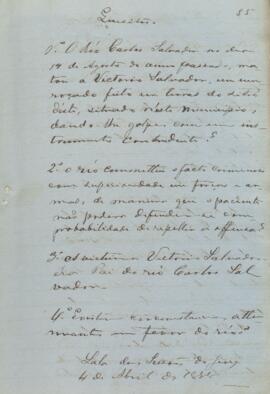 85
Quesitos
1º O Réo Carlos Salvador no dia
14 de Agosto do anno passado, ma-
tou a Victorio Salvador, em um
roçado feito em terras do
situado neste Municipio,
dando-lhe golpes com um
instrumento contundente?
2º O réo commetteu o facto criminoso
com superioridade em forças e ar-
mas, de maneira que o paciente
não podera defender-se com
probabilidade de repellir a offensa?
3º A victima Victorio Salvador
era Pai do réo Carlos Sal-
vador
4º Existem circunstancias atte-
nuantes em favor do réo?
Sala das Sessões do jury
4 de Abril de